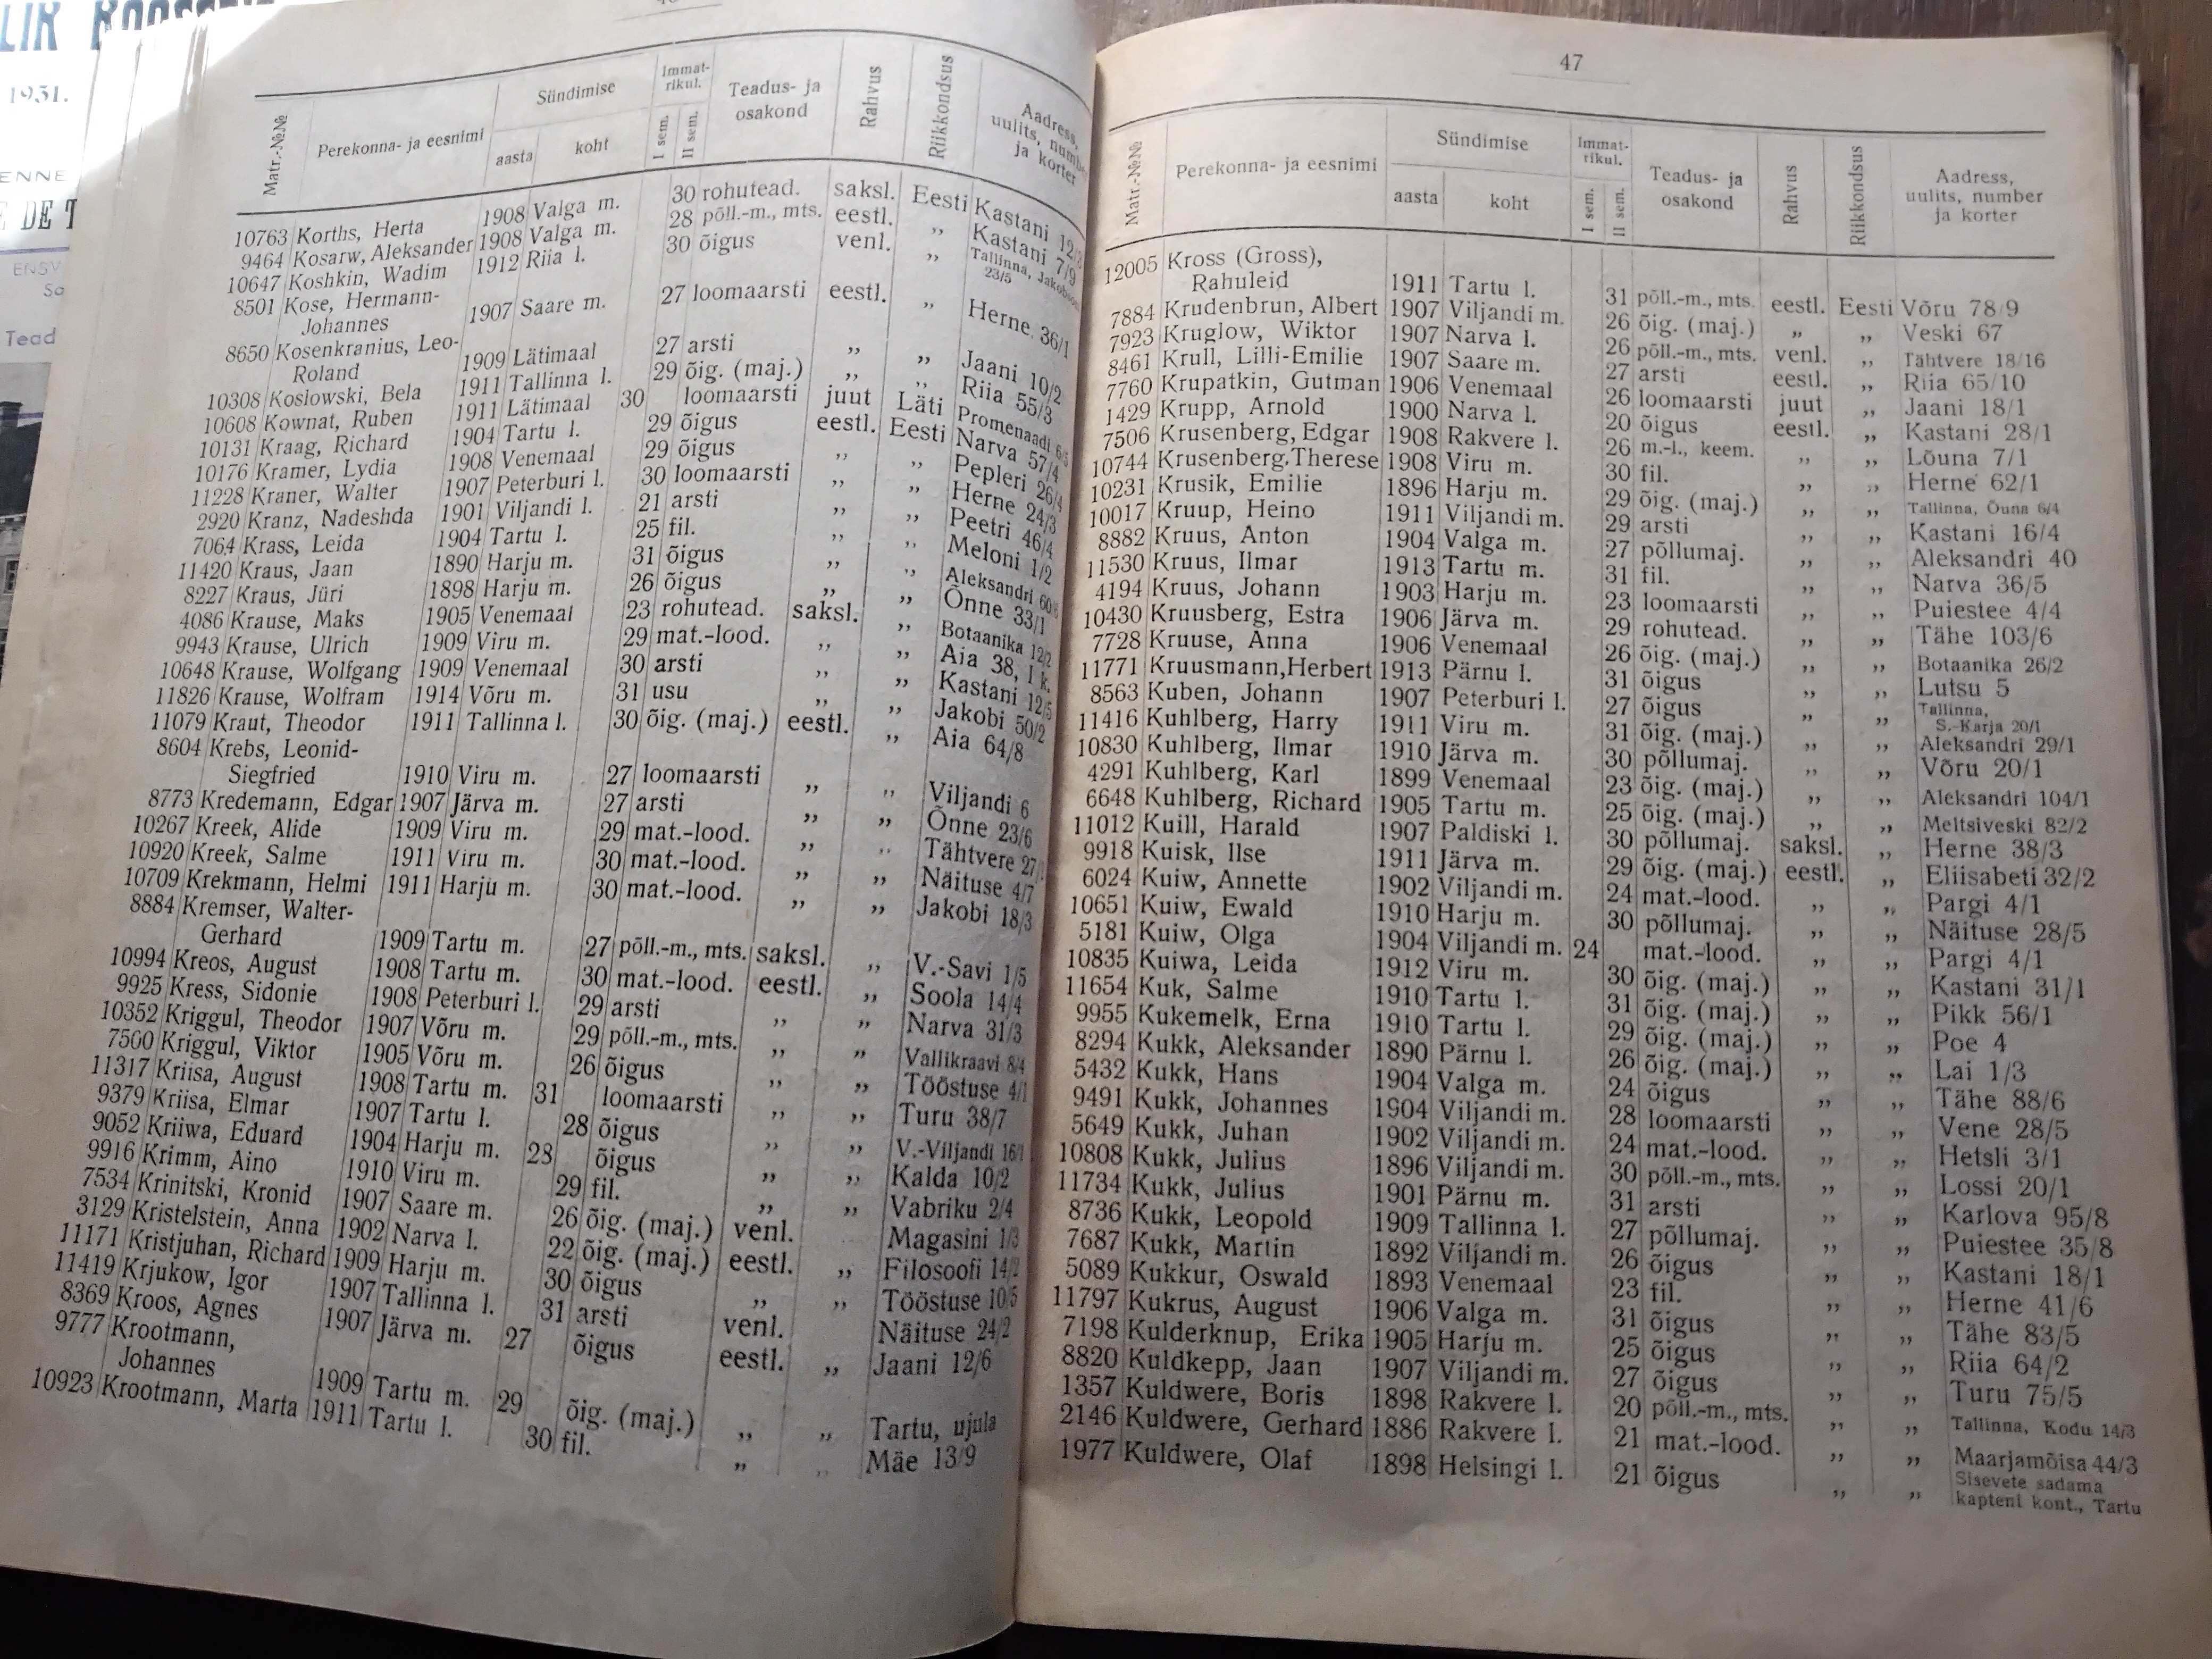 47
Matr.-№№ Perekonna- ja eesnimi Sündimise aasta koht Immat-rikul. I sem. II sem. Teadus- ja osakond Rahvus Riikkondsus Aadress, uulits, number ja korter
10763 Korths, Herta 1908 Valga m. 30 rohutead. saksl. Eesti Kastani
9464 Kosarw, Aleksander 1908 Valga m. 28 põll.-m., mts. eestl. ,, Kastani 7/9
10647 Koshkin, Wadim 1912 Riia l. 30 õigus venl. ,, Tallinna, 23/5
8501 Kose, Hermann-
Johannes 1907 Saare m. 27 loomaarsti eestl. ,, Herne 36/1
8650 Kosenkranius, Leo-
Roland 1909 Lätimaal 27 arsti ,, ,, Jaani 10/2
10308 Koslowski, Bela 1911 Tallinna l. 29 õig. (maj.) ,, ,, Riia 55/3
10608 Kownat, Ruben 1911 Lätimaal 30 loomaarsti juut Läti Promenaadi
10131 Kraag, Richard 1904 Tartu l. 29 õigus eestl. Eesti Narva 57/4
10176 Kramer, Lydia 1908 Venemaal 29 õigus ,, ,, Pepleri 26/4
11228 Kraner, Walter 1907 Peterburi l. 30 loomaarsti ,, ,, Herne 24/3
2920 Kranz, Nadeshda 1901 Viljandi l. 21 arsti ,, ,, Peetri 46/4
7064 Krass, Leida 1904 Tartu l. 25 fil. ,, ,, Meloni 1/2
11420 Kraus, Jaan 1890 Harju m. 31 õigus ,, ,, Aleksandri
8227 Kraus, Jüri 1898 Harju m. 26 õigus ,, ,, Õnne 33/1
4086 Krause, Maks 1905 Venemaal 23 rohutead. saksl. ,, Botaanika 12/2
9943 Krause, Ulrich 1909 Viru m. 29 mat.-lood. ,, ,, Aia 38, 1 k.
10648 Krause, Wolfgang 1909 Venemaal 30 arsti ,, ,, Kastani 12/5
11826 Krause, Wolfram 1914 Võru m. 31 usu ,, ,, Jakobi 50/2
11079 Kraut, Theodor 1911 Tallinna l. 30 õig. (maj.) eestl. ,, Aia 64/8
8604 Krebs, Leonid-
Siegfried 1910 Viru m. 27 loomaarsti ,, ,, Viljandi 6
8773 Kredemann, Edgar 1907 Järva m. 27 arsti ,, ,, Õnne 23/6
10267 Kreek, Alide 1909 Viru m. 29 mat.-lood. ,, ,, Tähtvere
10920 Kreek, Salme 1911 Viru m. 30 mat.-lood. ,, ,, Näituse 4/7
10709 Krekmann, Helmi 1911 Harju m. 30 mat.-lood. ,, ,, Jakobi 18/3
8884 Kremser, Walter-
Gerhard 1909 Tartu m. 27 põll.-m., mts. saksl. ,, V.-Savi 1/5
10994 Kreos, August 1908 Tartu m. 30 mat.-lood. eestl. ,, Soola 14/4
9925 Kress, Sidonie 1908 Peterburi l. 29 arsti ,, ,, Narva 31/3
10352 Kriggul, Theodor 1907 Võru m. 29 põll.-m., mts. ,, ,, Vallikraavi 8/4
7500 Kriggul, Viktor 1905 Võru m. 26 õigus ,, ,, Tööstuse 4/1
11317 Kriisa, August 1908 Tartu m. 31 loomaarsti ,, ,, Turu 38/7
9379 Kriisa, Elmar 1907 Tartu l. 28 õigus ,, ,, V.-Viljandi 16/1
9052 Kriiwa, Eduard 1904 Harju m. 28 õigus ,, ,, Kalda 10/2
9916 Krimm, Aino 1910 Viru m. 29 fil. ,, ,, Vabriku 2/4
7534 Krinitski, Kronid 1907 Saare m. 26 õig. (maj.) venl. Magasini 1/3
3129 Kristelstein, Anna 1902 Narva l. 22 õig. (maj.) eestl. ,, Filosoofi 14/2
11171 Kristjuhan, Richard 1909 Harju m. 30 õigus ,, ,, Tööstuse 10/5
11419 Krjukow, Igor 1907 Tallinna l. 31 arsti venl. Näituse 24/2
8369 Kroos, Agnes 1907 Järva m. 27 õigus eestl. ,, Jaani 12/6
9777 Krootmann,
Johannes 1909 Tartu m. 29 õig. (maj.) ,, ,, Tartu, ujula
10923 Krootmann, Marta 1911 Tartu l. 30 fil. ,, ,, Mäe 13/9
Matr.-№№ Perekonna- ja eesnimi Sündimise aasta koht Immat-rikul. I sem. II sem. Teadus- ja osakond Rahvus Riikkondsus Aadress, uulits, number ja korter
12005 Kross (Gross),
Rahuleid 1911 Tartu l. 31 põll.-m., mts. eestl. Eesti Võru 78/9
7884 Krudenbrun, Albert 1907 Viljandi m. 26 õig. (maj.) ,, ,, Veski 67
7923 Kruglow, Wiktor 1907 Narva l. 26 põll.-m., mts. venl. ,, Tähtvere 18/16
8461 Krull, Lilli-Emilie 1907 Saare m. 27 arsti eestl. ,, Riia 65/10
7760 Krupatkin, Gutman 1906 Venemaal 26 loomaarsti juut ,, Jaani 18/1
1429 Krupp, Arnold 1900 Narva l. 20 õigus eestl. ,, Kastani 28/1
7506 Krusenberg, Edgar 1908 Rakvere l. 26 m.-l., keem. ,, ,, Lõuna 7/1
10744 Krusenberg, Therese 1908 Viru m. 30 fil. ,, ,, Herne 62/1
10231 Krusik, Emilie 1896 Harju m. 29 õig. (maj.) ,, ,, Tallinna, Õuna 6/4
10017 Kruup, Heino 1911 Viljandi m. 29 arsti ,, ,, Kastani 16/4
8882 Kruus, Anton 1904 Valga m. 27 põllumaj. ,, ,, Aleksandri 40
11530 Kruus, Ilmar 1913 Tartu m. 31 fil. ,, ,, Narva 36/5
4194 Kruus, Johann 1903 Harju m. 23 loomaarsti ,, ,, Puiestee 4/4
10430 Kruusberg, Estra 1906 Järva m. 29 rohutead. ,, ,, Tähe 103/6
7728 Kruuse, Anna 1906 Venemaal 26 õig. (maj.) ,, ,, Botaanika 26/2
11771 Kruusmann, Herbert 1913 Pärnu l. 31 õigus ,, ,, Lutsu 5
8563 Kuben, Johann 1907 Peterburi l. 27 õigus ,, ,, Tallinna, S.-Karja 20/1
11416 Kuhlberg, Harry 1911 Viru m. 31 õig. (maj.) ,, ,, Aleksandri 29/1
10830 Kuhlberg, Ilmar 1910 Järva m. 30 põllumaj. ,, ,, Võru 20/1
4291 Kuhlberg, Karl 1899 Venemaal 23 õig. (maj.) ,, ,, Aleksandri 104/1
6648 Kuhlberg, Richard 1905 Tartu m. 25 õig. (maj.) ,, ,, Meltsiveski 82/2
11012 Kuill, Harald 1907 Paldiski l. 30 põllumaj. saksl. ,, Herne 38/3
9918 Kuisk, Ilse 1911 Järva m. 29 õig. (maj.) eestl. ,, Eliisabeti 32/2
6024 Kuiw, Annette 1902 Viljandi m. 24 mat.-lood. ,, ,, Pargi 4/1
10651 Kuiw, Ewald 1910 Harju m. 30 põllumaj. ,, ,, Näituse 28/5
5181 Kuiw, Olga 1904 Viljandi m. 24 mat.-lood. ,, ,, Pargi 4/1
10835 Kuiwa, Leida 1912 Viru m. 30 õig. (maj.) ,, ,, Kastani 31/1
11654 Kuk, Salme 1910 Tartu l. 31 õig. (maj.) ,, ,, Pikk 56/1
9955 Kukemelk, Erna 1910 Tartu l. 29 õig. (maj.) ,, ,, Poe 4
8294 Kukk, Aleksander 1890 Pärnu l. 26 õig. (maj.) ,, ,, Lai 1/3
5432 Kukk, Hans 1904 Valga m. 24 õigus ,, ,, Tähe 88/6
9491 Kukk, Johannes 1904 Viljandi m. 28 loomaarsti ,, ,, Vene 28/5
5649 Kukk, Juhan 1902 Viljandi m. 24 mat.-lood. ,, ,, Hetsli 3/1
10808 Kukk, Julius 1896 Viljandi m. 30 põll.-m., mts. ,, ,, Lossi 20/1
11734 Kukk, Julius 1901 Pärnu m. 31 arsti ,, ,, Karlova 95/8
8736 Kukk, Leopold 1909 Tallinna l. 27 põllumaj. ,, ,, Puiestee 35/8
7687 Kukk, Martin 1892 Viljandi m. 26 õigus ,, ,, Kastani 18/1
5089 Kukkur, Oswald 1893 Venemaal 23 fil. ,, ,, Herne 41/6
11797 Kukrus, August 1906 Valga m. 31 õigus ,, ,, Tähe 83/5
7198 Kulderknup, Erika 1905 Harju m. 25 õigus ,, ,, Riia 64/2
8820 Kuldkepp, Jaan 1907 Viljandi m. 27 õigus ,, ,, Turu 75/5
1357 Kuldwere, Boris 1898 Rakvere l. 20 põll.-m., mts. ,, ,, Tallinna, Kodu 14/3
2146 Kuldwere, Gerhard 1886 Rakvere l. 21 mat.-lood. ,, ,, Maarjamõisa 44/3
1977 Kuldwere, Olaf 1898 Helsingi l. 21 õigus ,, ,, Sisevete sadama kapteni kont., Tartu
1931.
DE
ENSV